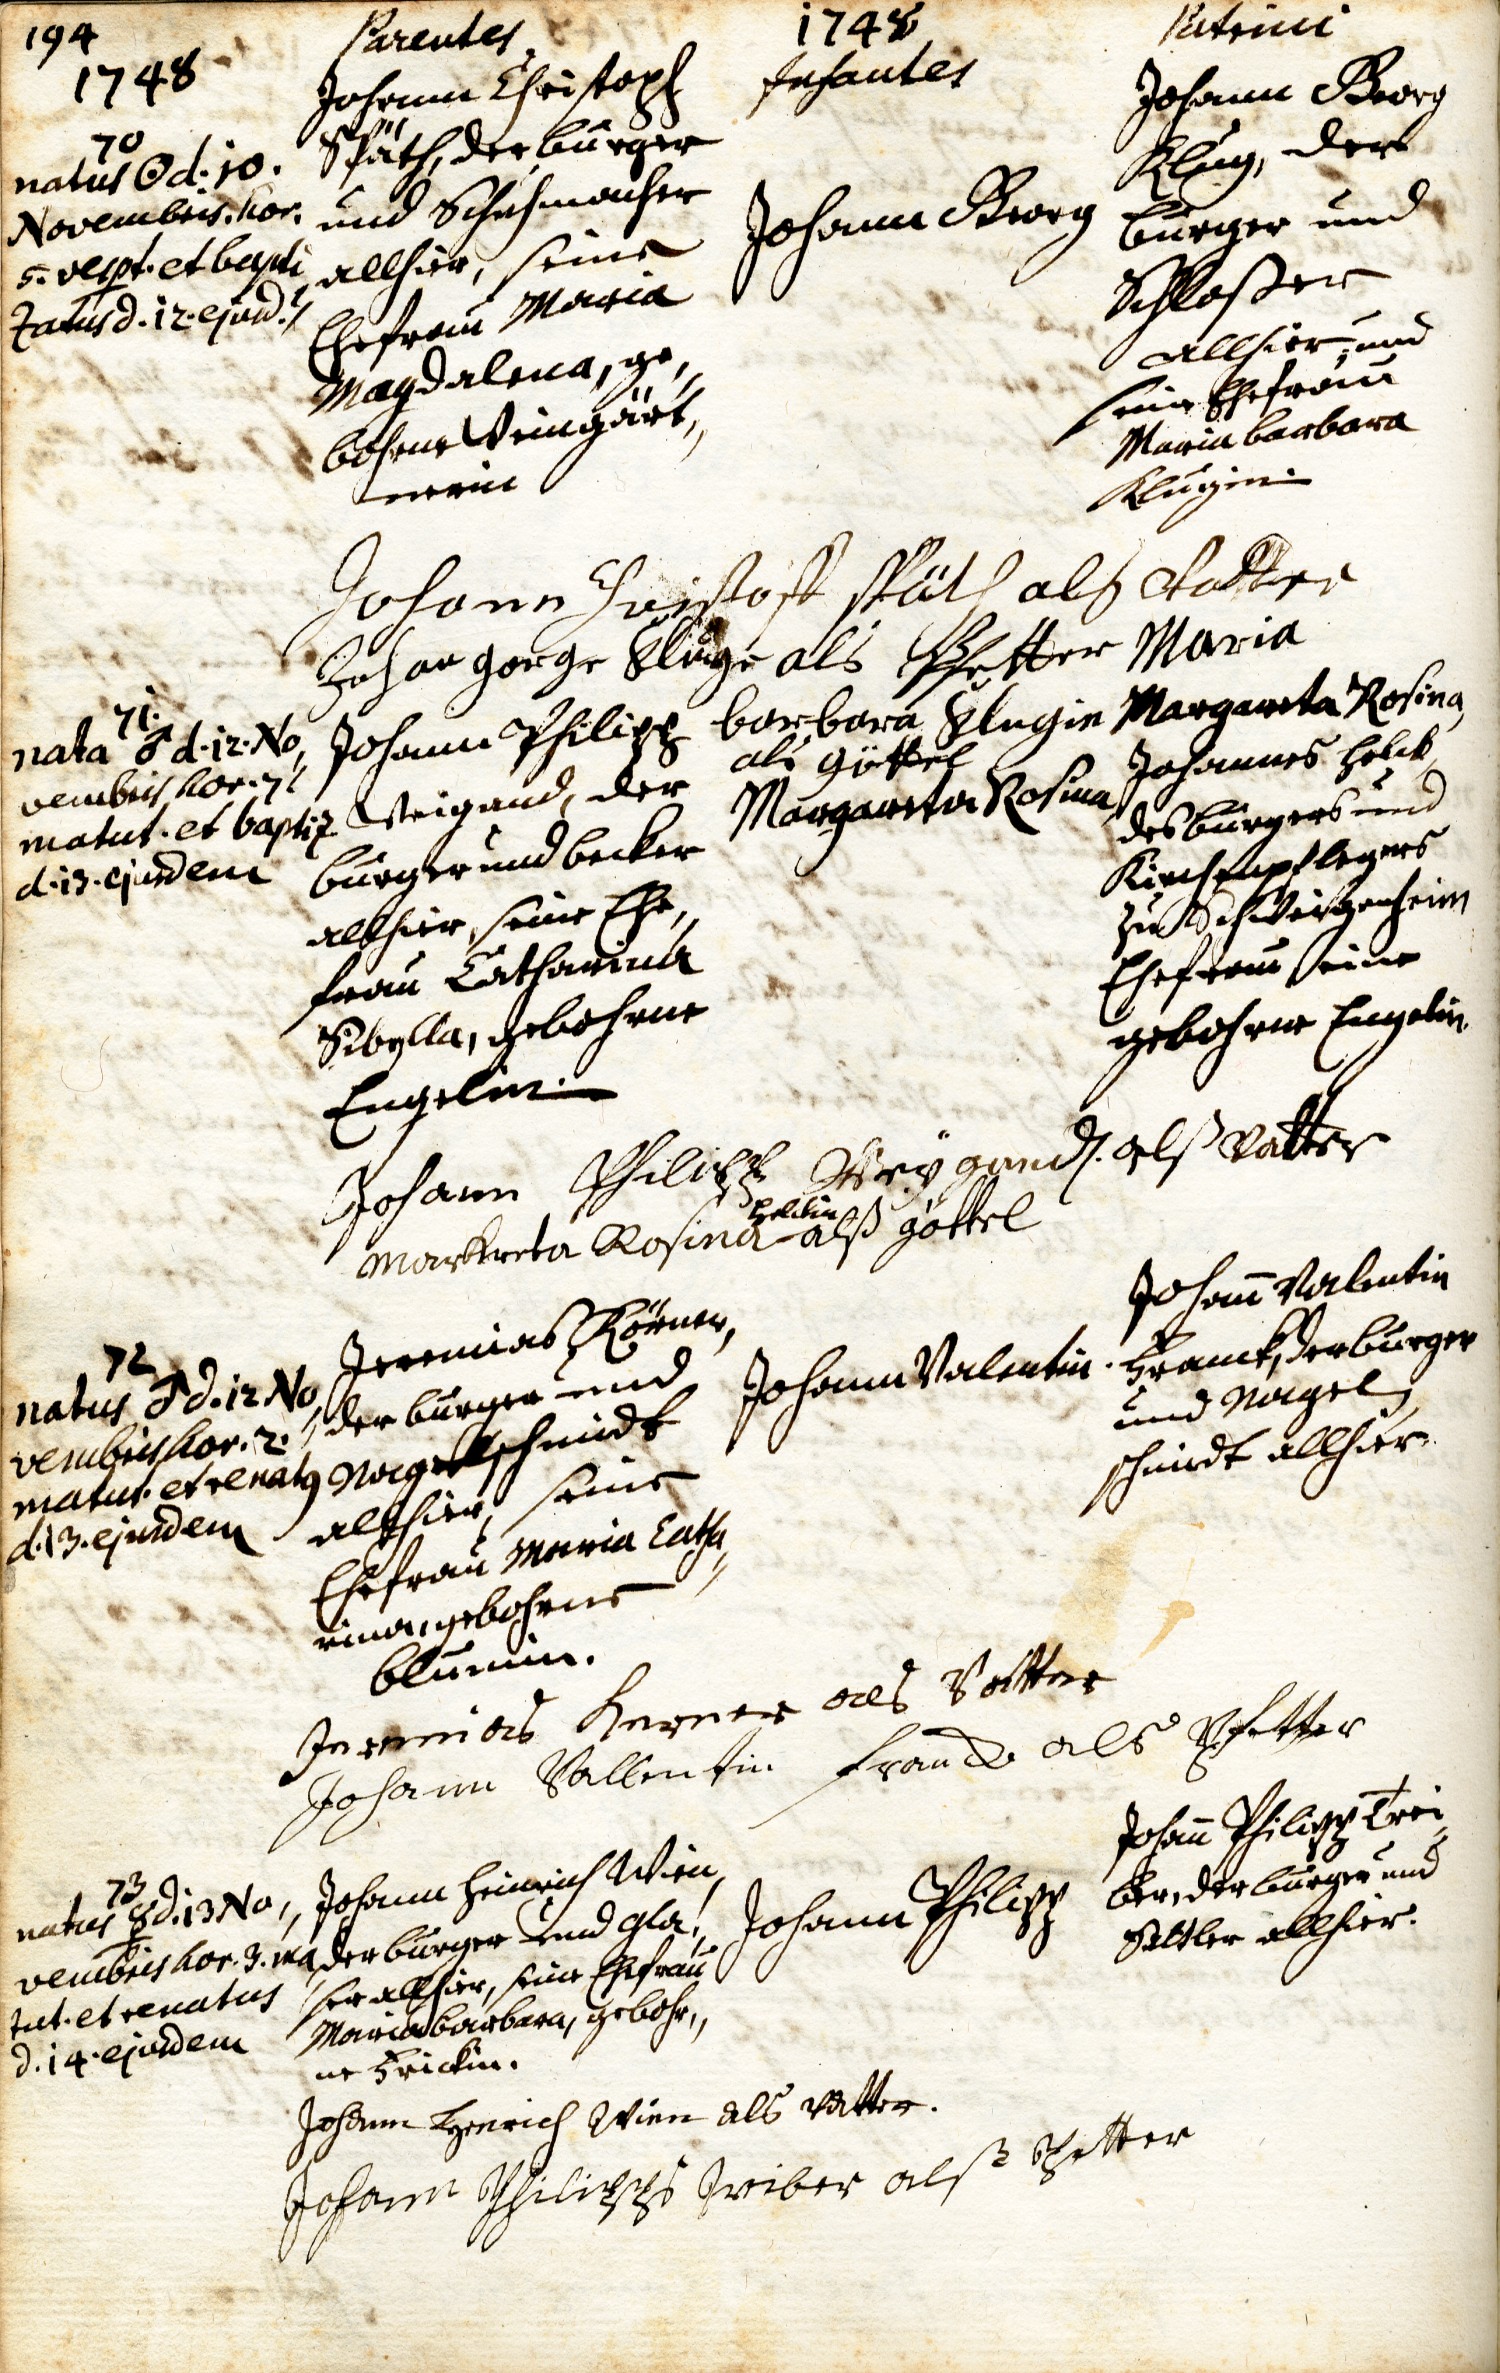 194
1748
Parentes
1748
Infantes
Patrini
70
natus ☉ d. 10.
Novembris. hor.
5. vespt. et bapti
zatus d. 12. ejusd.
Johann Christoph
Späth, der burger
und Schuhmacher
allhier, seine
Ehefrau Maria
Magdalena, ge„
bohrne Weingärt„
nerin
Johann Georg
Johann Georg
Klug, der
burger und
Schloßer
allhier, und
seine Ehefrau
Maria barbara
Klugin
Johann Christoff Späth alß Vatter
Johan gorge Kluge als Pfetter Maria
barbara Klugin
als göttel
71.
nata ♂ d. 12. No„
vembris hor. 7
matut. et baptiz
d. 13. ejusdem
Johann Philipp
Weigand, der
burger und becker
allhier, seine Ehe„
frau Catharina
Sibylla, gebohrne
Engelin.
Margareta Rosina
Margareta Rosina,
Johannes Helck,
des burgers und
Kirchenpflegers
zu Schweigenheim
Ehefrau, seine
gebohrne Engelin.
Johann Philipp Weygandt. alß Vatter
Markreta Rosina helckin alß göttel
72
natus ♂ d. 12 No„
vembris hor. 2.
matut. et renatq
d. 13. ejusdem
Jeremias Körner,
der burger und
Nagelschmidt
allhier, seine
Ehefrau Maria Catha„
rina, gebohrne
blumin.
Johann Valentin.
Johann Valentin
Franck, der burger
und Nagel
schmidt allhier.
Jeremias Kerner als Vatter
Johann Vallentin Franck als Pfetter
73
natus ☿ d. 13 No„
vembris hor. 3. ma
tut. et renatus
d. 14. ejusdem
Johann Heinrich Wien,
der burger und gla„
ser allhier, seine Ehefrau
Maria barbara, gebohr„
ne Frickin.
Johann Philipp
Johann Philipp Trei„
ber, der burger und
Sattler allhier.
Johann Henrich Wien als Vatter.
Johann Philipps Treiber alß Pfetter